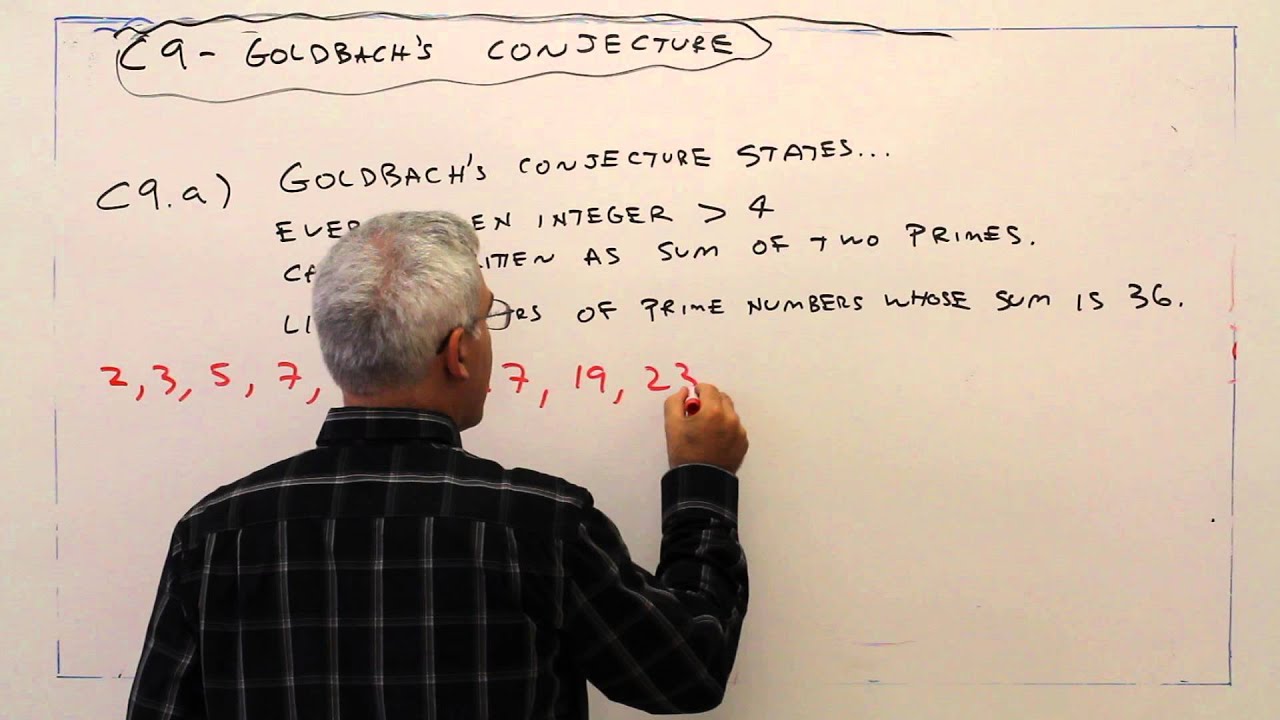 C9 - GOLDBACH'S CONJECTURE
C9.a) GOLDBACH'S CONJECTURE STATES...
INTEGER > 4
AS SUM OF TWO PRIMES.
OF PRIME NUMBERS WHOSE SUM IS 36.
2, 3, 5, 7, 19, 23